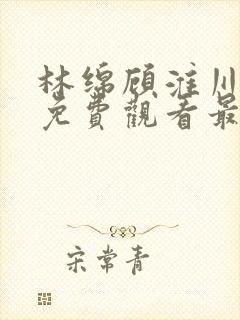 林绵顾淮川
免費觀看最
宋常青